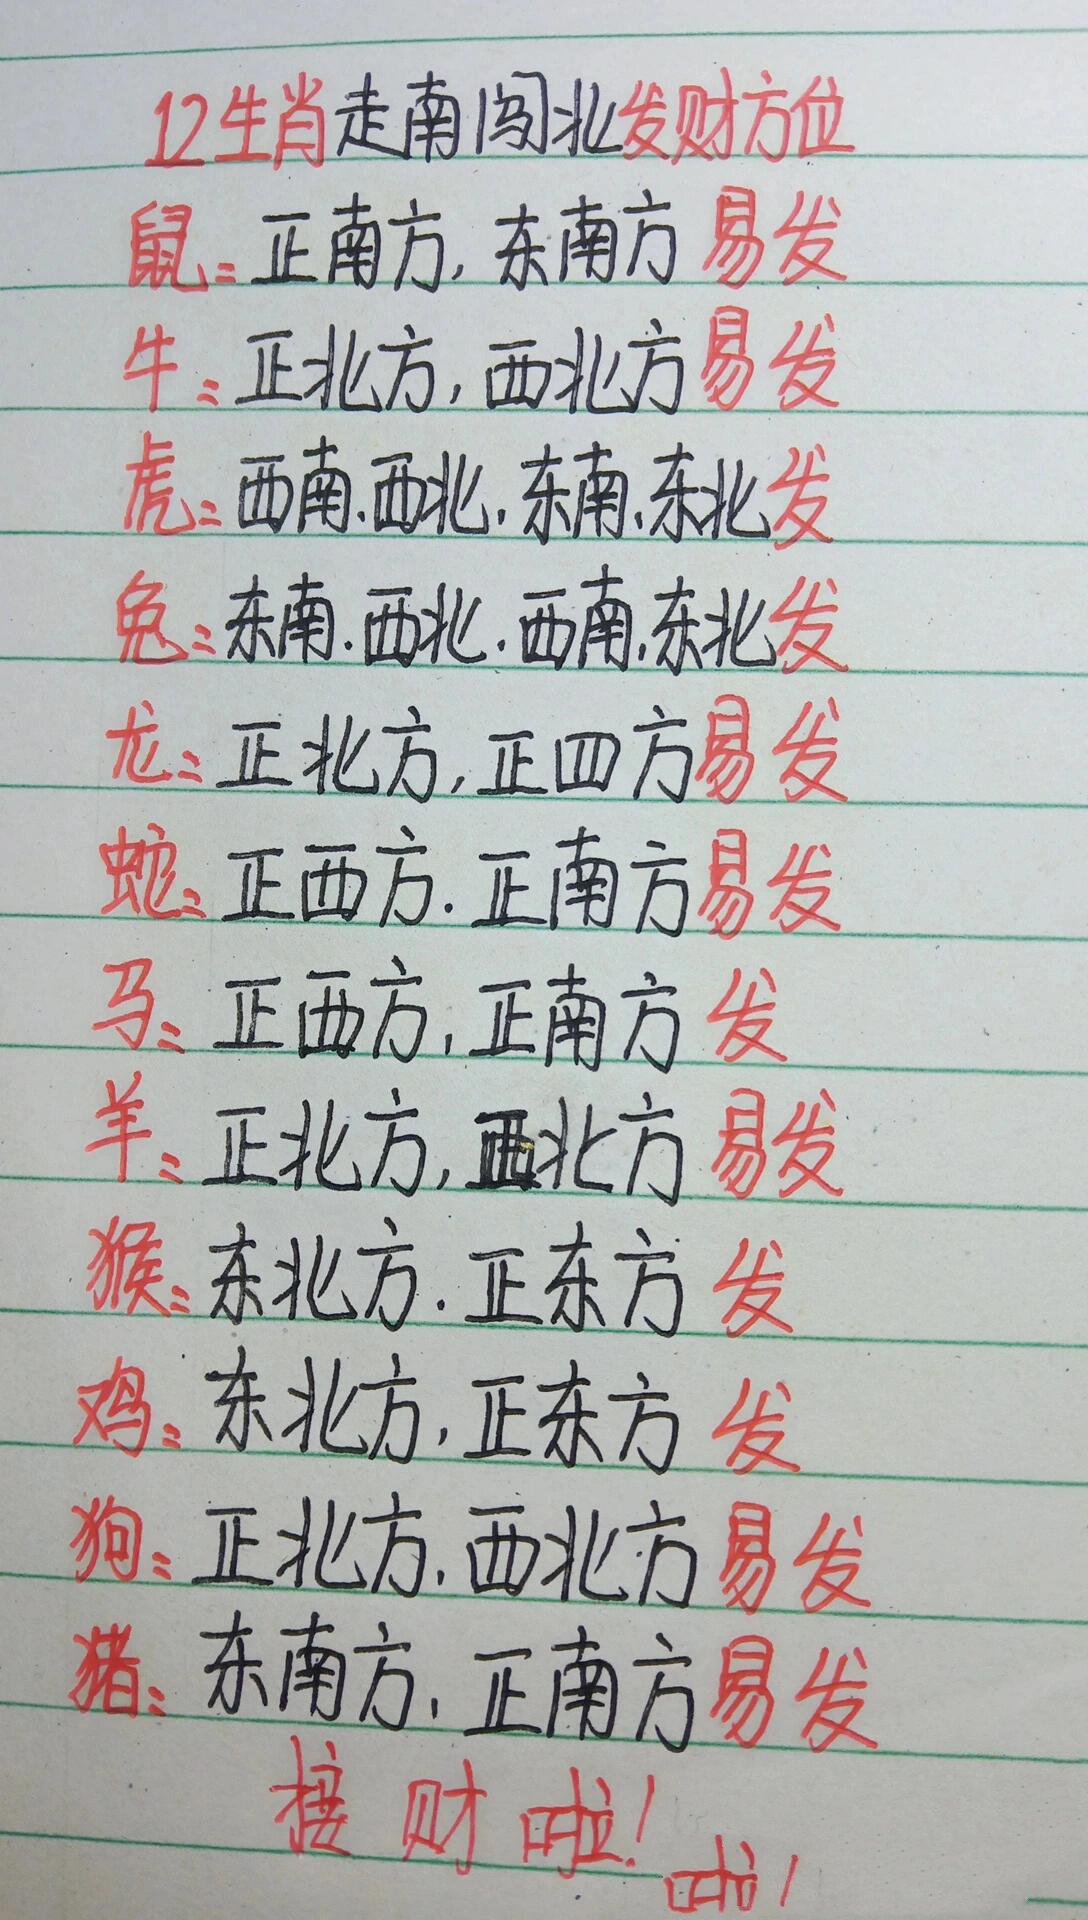 12生肖走南闯北发财方位
鼠：正南方，东南方易发
牛：正北方，西北方易发
虎：西南.西北.东南.东北发
兔：东南.西北.西南.东北发
龙：正北方，正四方易发
蛇：正西方.正南方易发
马：正西方，正南方发
羊：正北方，西北方易发
猴：东北方.正东方发
鸡：东北方，正东方发
狗：正北方.西北方易发
猪：东南方.正南方易发
接财啦！
啦！